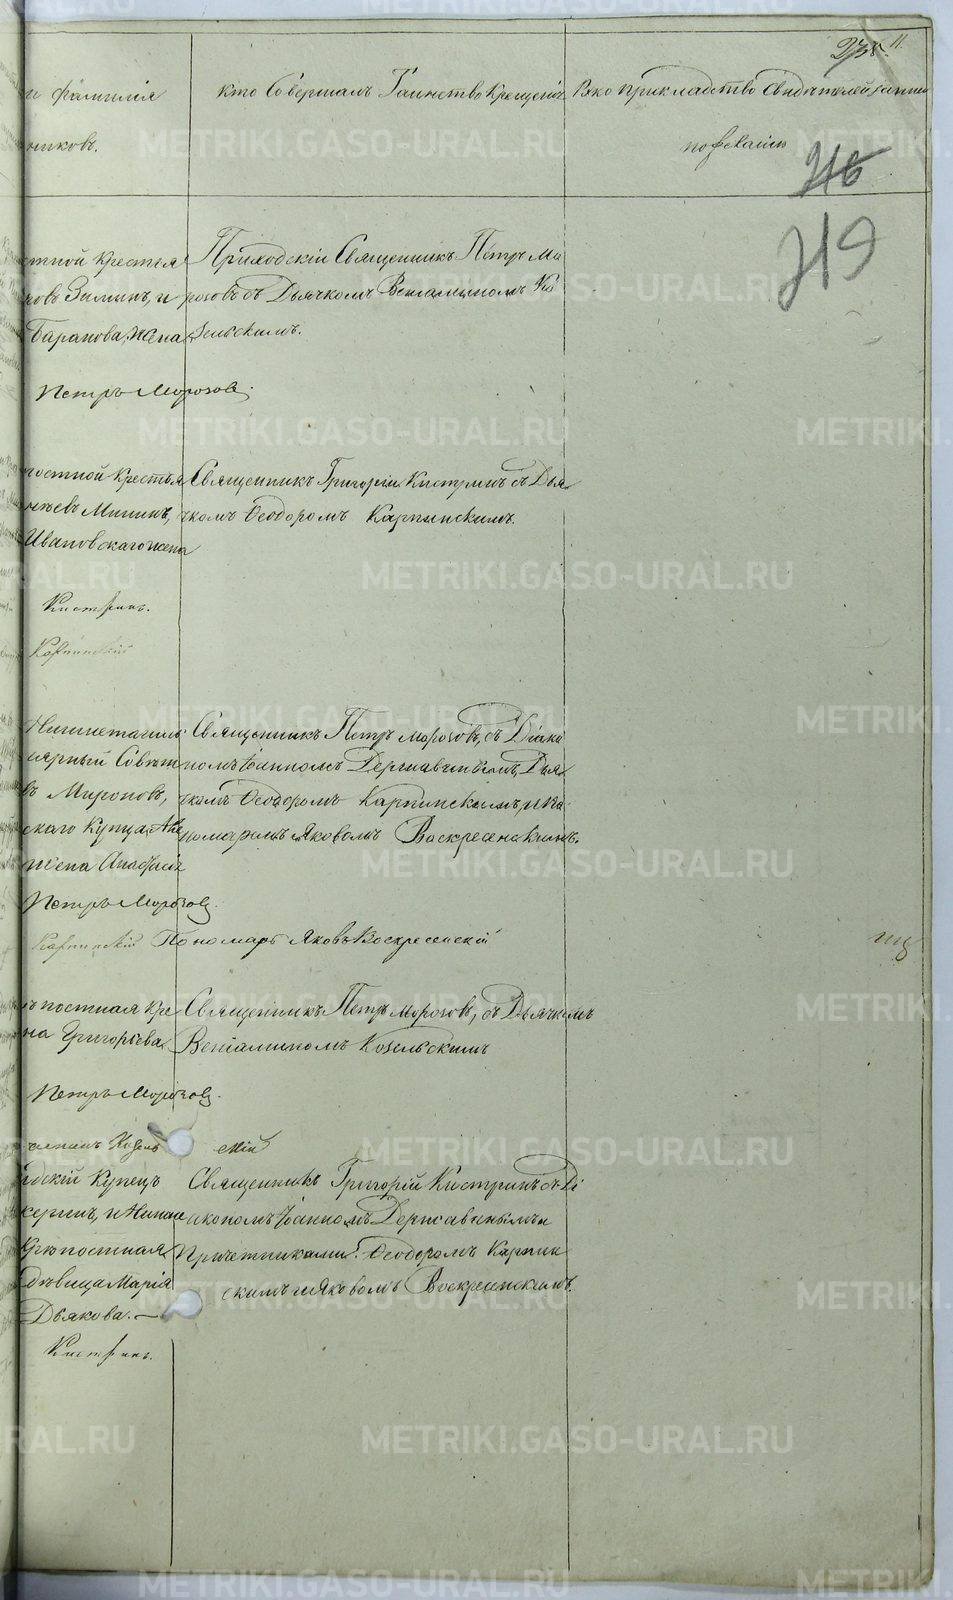 11.
и фамилія
никовъ.
Кто совершалъ Таинство Крещенія
Рукоприкладство Свидѣтелей записи
по желанію
319
стной Крестья
ровъ Зиминъ, и
Баранова, жена
Приходскій Священникъ Петръ Мо
розовъ съ Дьячкомъ Веніаминомъ Ко
зельскимъ.
Петръ Морозовъ.
постной Крестья
Мининъ,
Ивановскаго жена
Священникъ Григорій Кистринъ съ Дья
чкомъ Ѳеодоромъ Карпинскимъ.
Кистринъ.
Карпинскій
Нижнетагиль
лярный Совѣт
въ Мироновъ,
скаго Купца
жена
Священникъ Петръ Морозовъ, съ Діако
номъ Іоанномъ Державинымъ, Дья
чкомъ Ѳеодоромъ Карпинскимъ, и По
номаремъ Яковомъ Воскресенскимъ.
Петръ Морозовъ.
Карпинскій Пономарь Яковъ Воскресенскій
ѣпостная Кре
на Григорьева
Священникъ Петръ Морозовъ, съ Дьячкомъ
Веніаминомъ Козельскимъ
Петръ Морозовъ.
Козель скій
дскій Купецъ
Крѣпостная
дѣвица Марія
Дьякова.
Священникъ Григорій Кистринъ съ Ді
акономъ Іоанномъ Державинымъ и
Причетниками: Ѳеодоромъ Карпин
скимъ и Яковомъ Воскресенскимъ.
Кистринъ.
METRIKI.GASO-URAL.RU